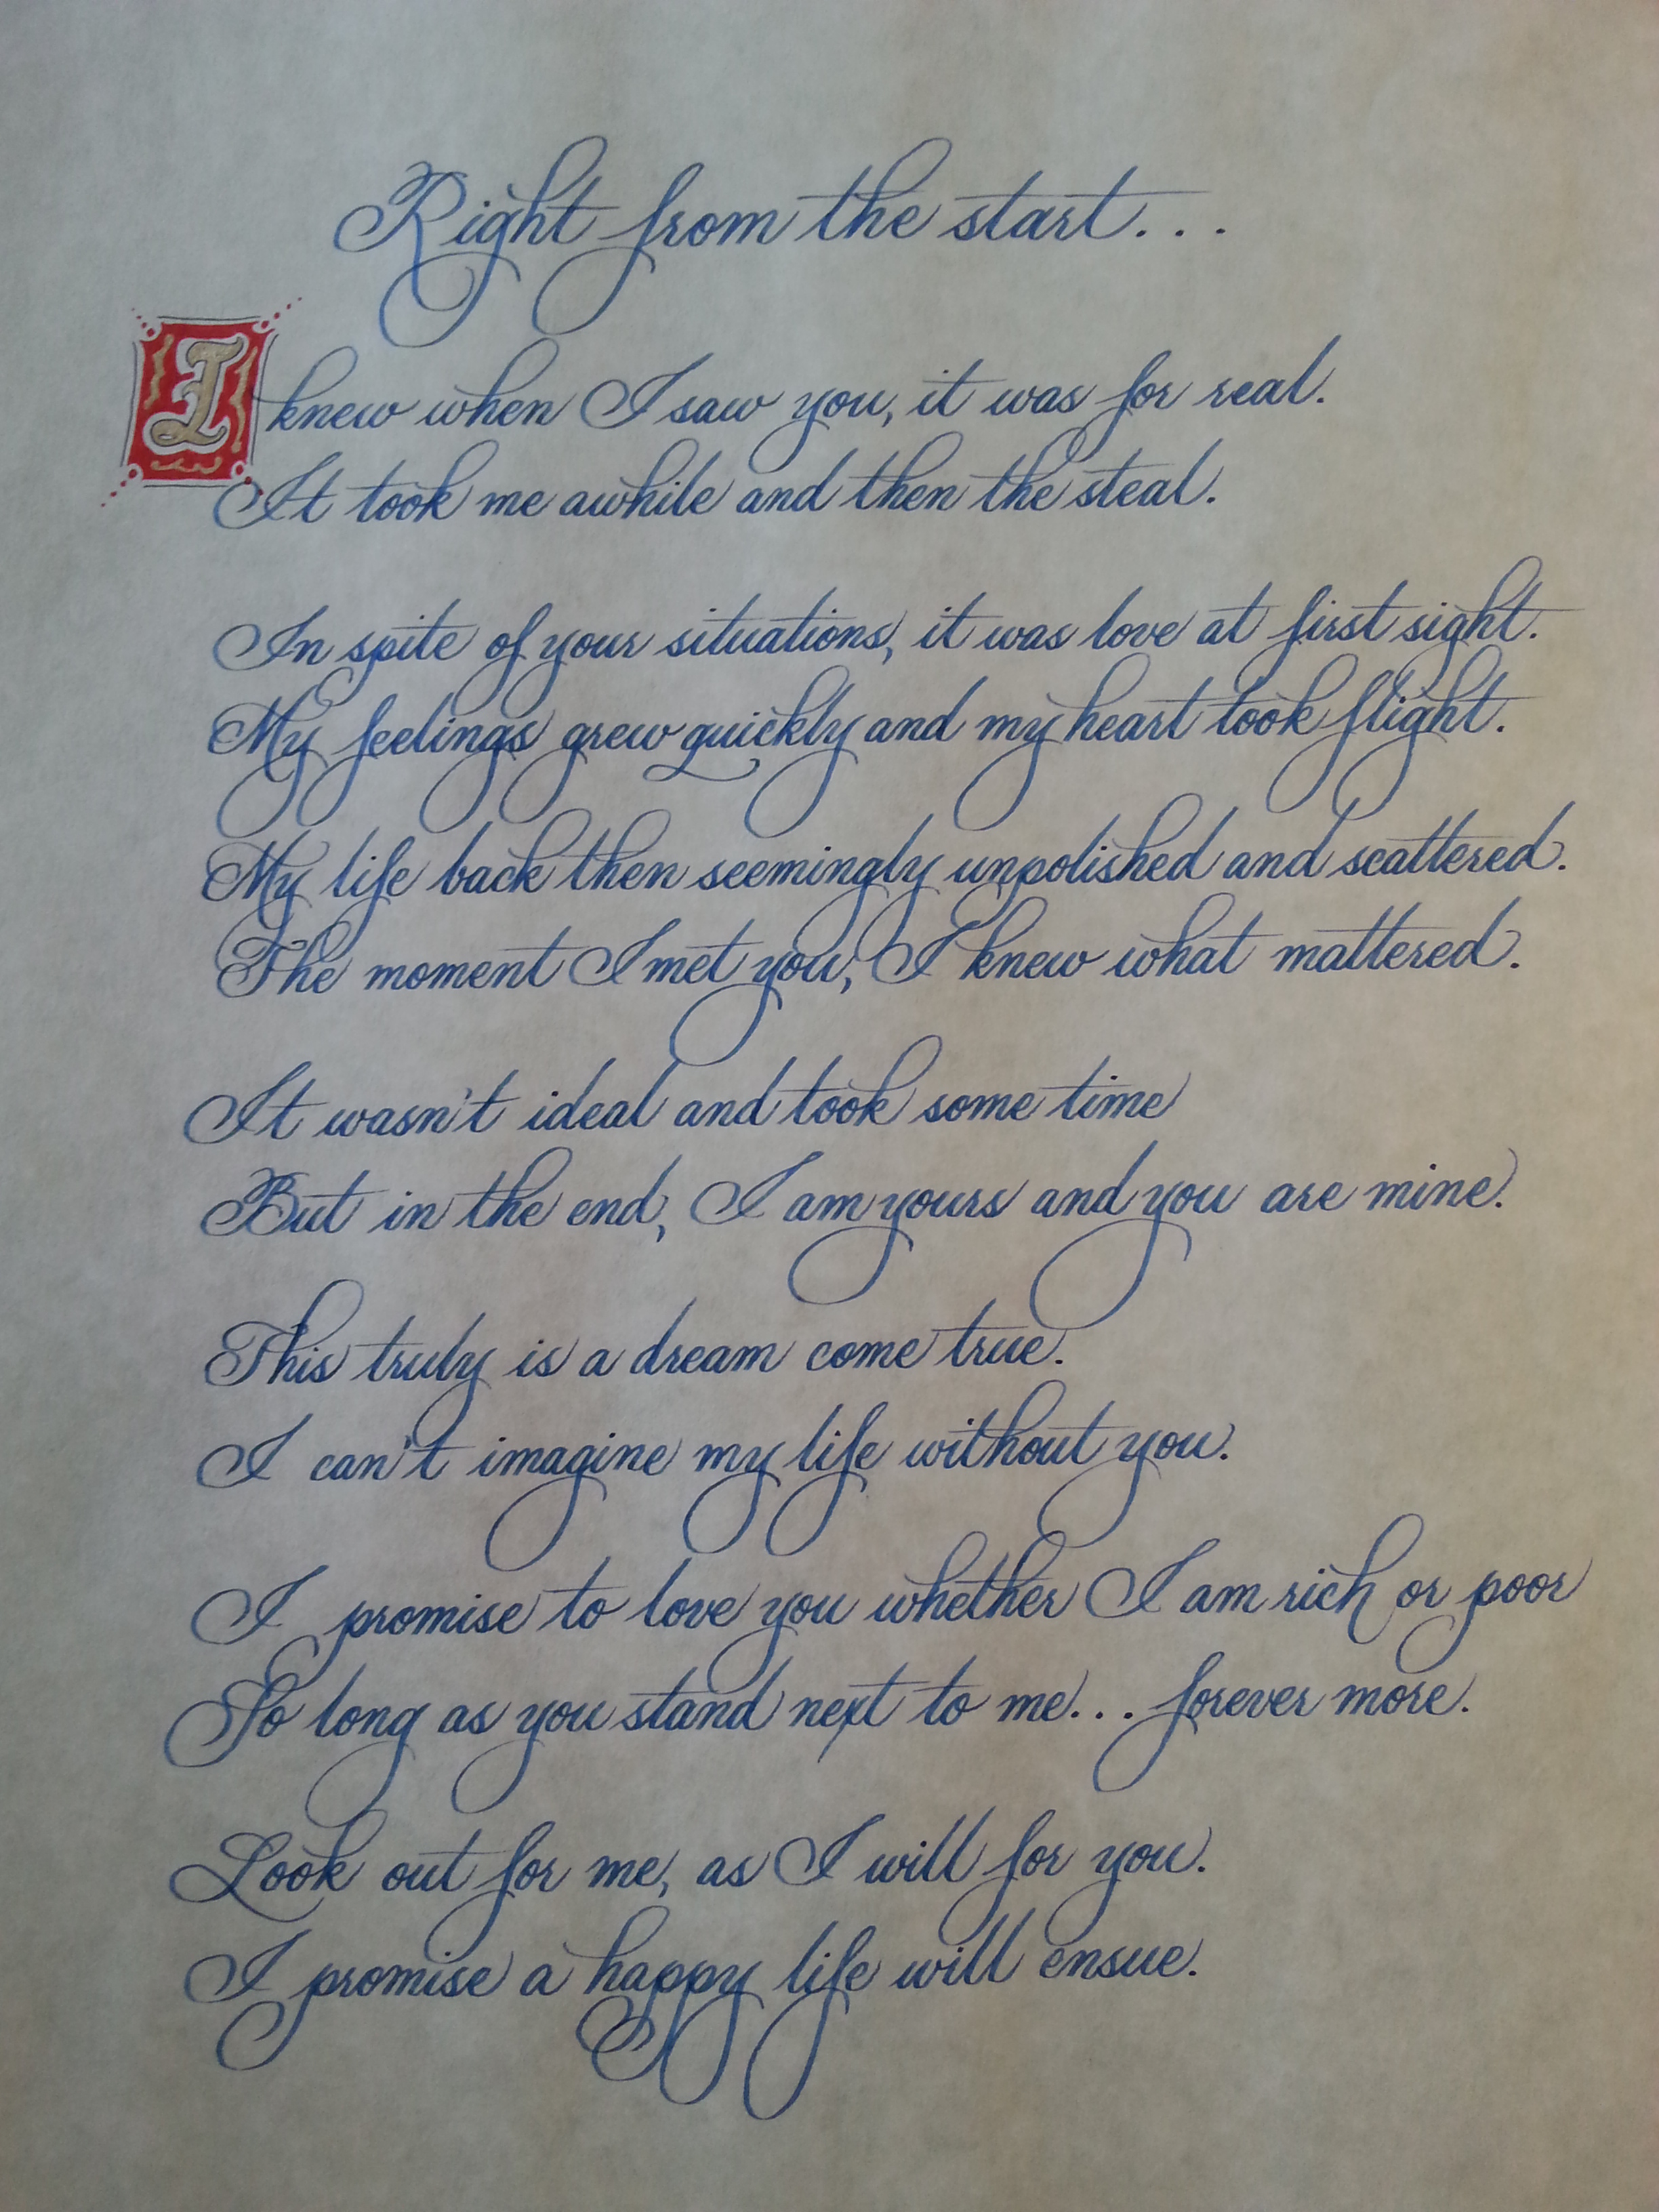 Right from the start...
I knew when I saw you, it was for real.
It took me awhile and then the steal.
In spite of your situations, it was love at first sight.
My feelings grew quickly and my heart took flight.
My life back then seemingly unpolished and scattered.
The moment I met you, I knew what mattered.
It wasn't ideal and took some time
But in the end, I am yours and you are mine.
This truly is a dream come true.
I can't imagine my life without you.
I promise to love you whether I am rich or poor
So long as you stand next to me... forever more.
Look out for me, as I will for you.
I promise a happy life will ensue.